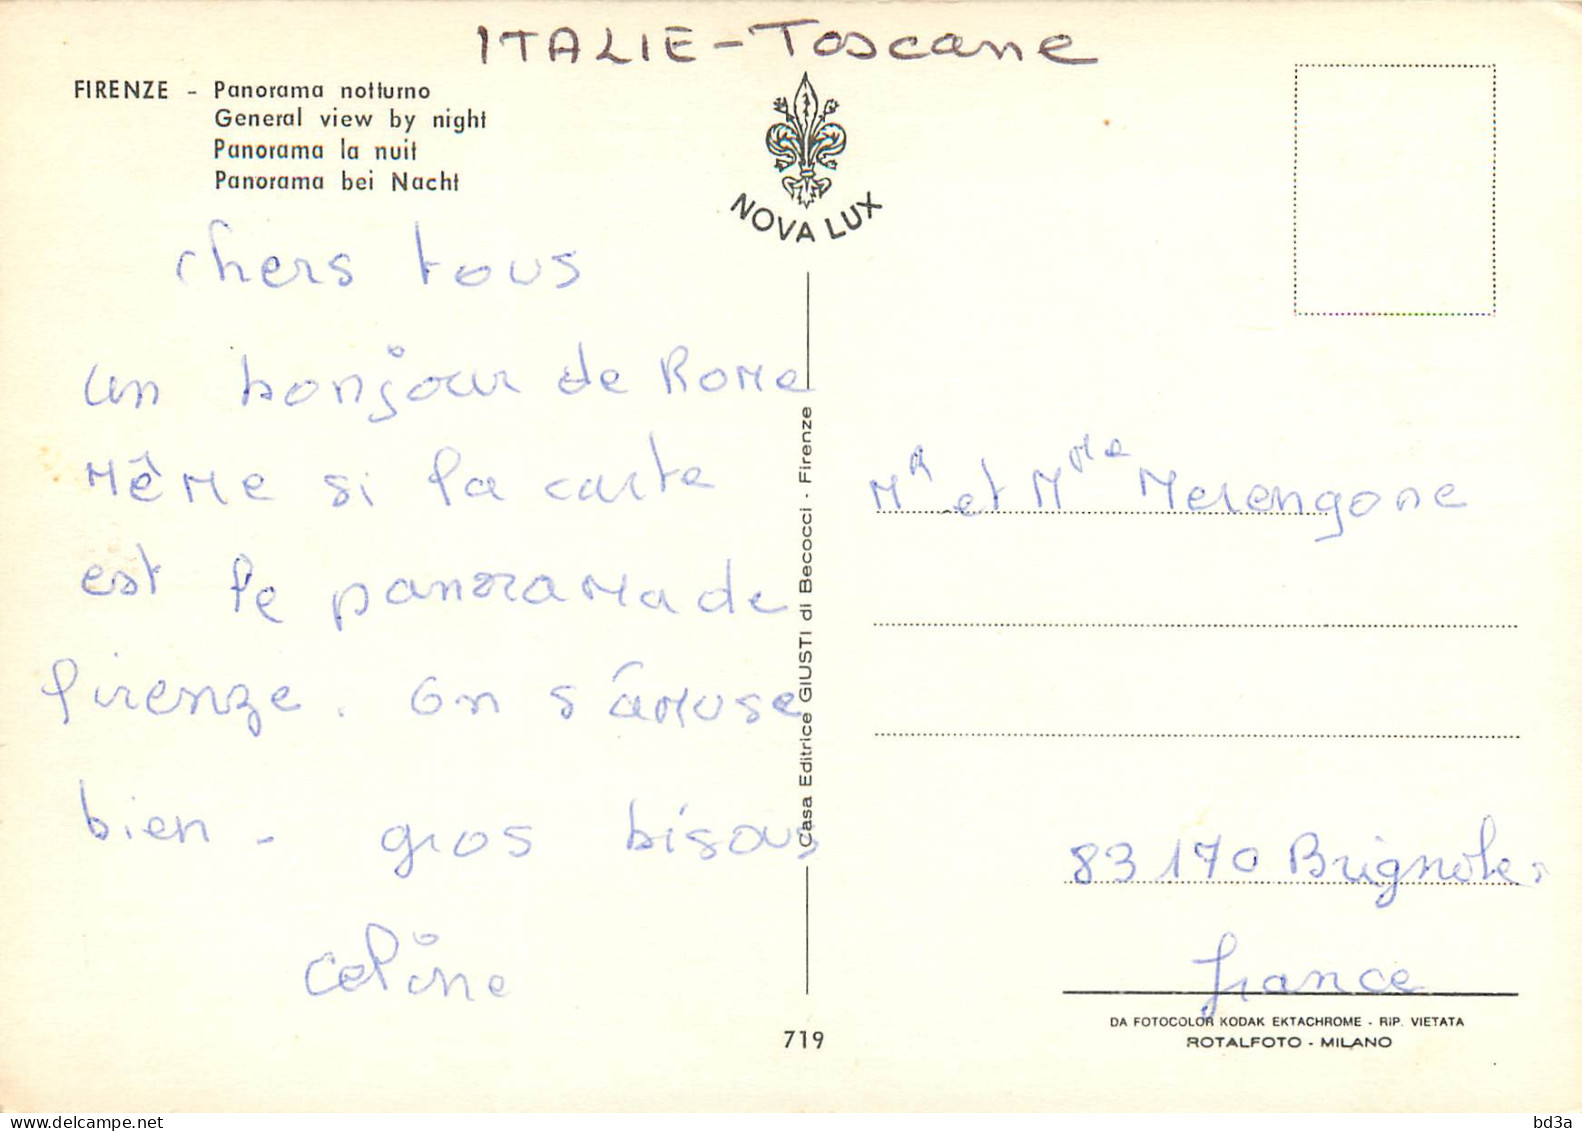 ITALIE - Toscane
FIRENZE - Panorama notturno
General view by night
Panorama la nuit
Panorama bei Nacht
NOVA LUX
chers tous
un bonjour de Rome
même si la carte
est le panorama de
firenze. on s'amuse
bien - gros bisous
celine
Casa Editrice GIUSTI di Becocci - Firenze
Mr et Mme Merengone
83170 Brignoles
france
719
DA FOTOCOLOR KODAK EKTACHROME - RIP. VIETATA
ROTALFOTO - MILANO
www.delcampe.net
bd3a